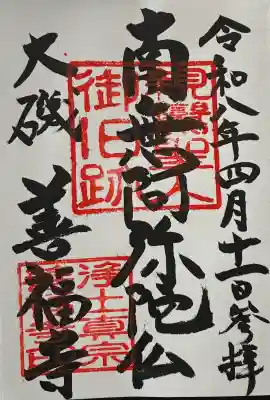 令和八年四月十一日参拝
南無阿弥陀仏
大磯 善福寺
親鸞聖人
御旧跡
浄土真宗